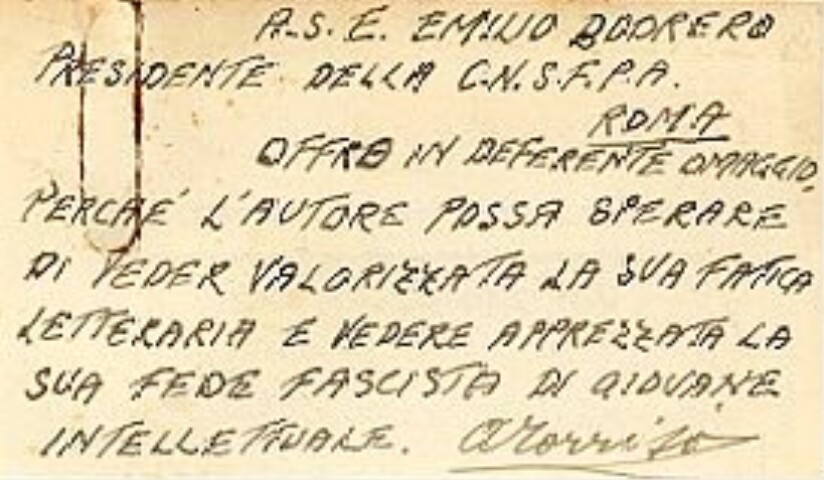 A.S.E. EMILIO BODRERO
PRESIDENTE DELLA C.N.S.F.P.A.
ROMA
OFFRO IN DEFERENTE OMAGGIO,
PERCHÉ L'AUTORE POSSA SPERARE
DI VEDER VALORIZZATA LA SUA FATICA
LETTERARIA E VEDERE APPREZZATA LA
SUA FEDE FASCISTA DI GIOVANE
INTELLETTUALE.